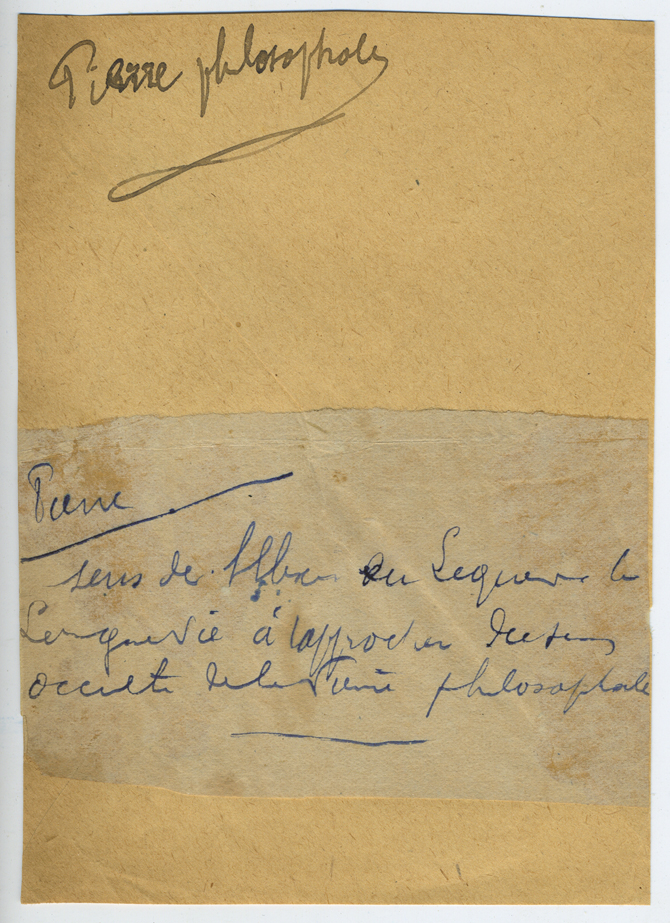 Pierre philosophale
Pierre
sens de ou le
Longue Vie à rapprocher du sens
occulte de la Pierre philosophale